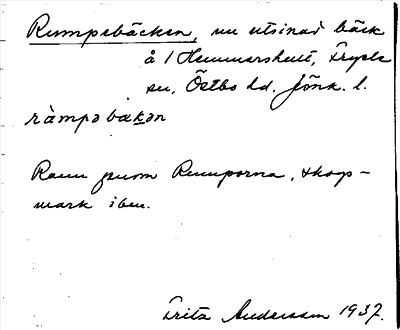 Rumpebäcken, nu utsinad bäck
å 1 Hemmershult, Tryde
sn, Östbo hd. Jönk. l.
ràmpəbäkən
Rann genom Rumporna, skogs-
mark iben.
Frita Andersson 1937.